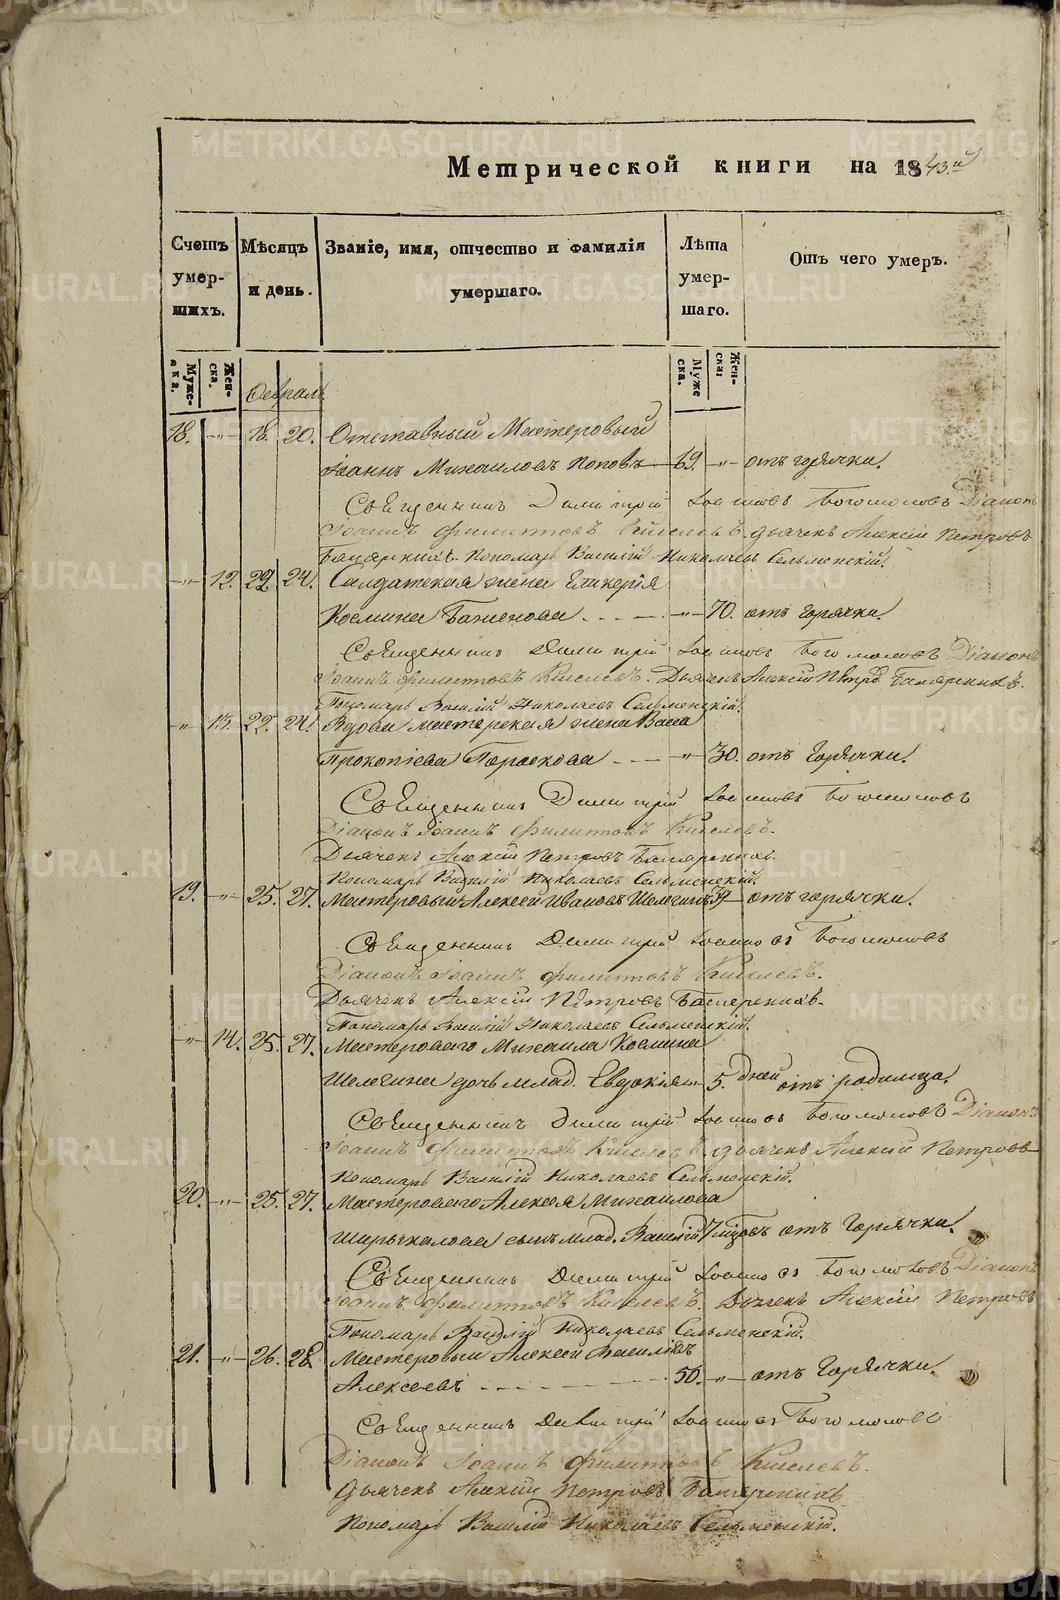 Метрической книги на 1843й
Счетъ умер-шихъ.
Мѣсяцъ и день.
Званіе, имя, отчество и фамилія умершаго.
Лѣта умер-шаго.
Отъ чего умеръ.
Муже-ска.
Жен-ска.
Муже ска.
Жен-ска:
Февраль
18. -"- 18. 20. Отставный Мастеровый
Іоаннъ Михаиловъ Поповъ 69. -"- отъ горячки.
Священникъ Димитрій Богомоловъ Діаконъ
Іоаннъ Филиповъ Киселевъ. дьячекъ Алексій Петровъ
Пономарь Василій Николаевъ Сельменскій.
-"- 12. 22 24. Салдатская жена Гликерія
Космина Баженова -"- 70. отъ горячки
Священникъ Димитрій Богомоловъ Діаконъ
Іоаннъ Филиповъ Киселевъ. Дьячекъ Алексій
Пономарь Василій Николаевъ Сельменскій.
-"- 13. 22. 24. Вдова мастерская жена Васса
Прокопіева -"- 30. отъ Горячки.
Священникъ Димитрій Богомоловъ
Діаконъ Іоаннъ Филиповъ Киселевъ.
Дьячекъ Алексій Петровъ
Пономарь Василій Николаевъ Сельменскій.
19. -"- 25. 27. Мастеровый Алексей Ивановъ Шелегинъ 39 отъ горячки.
Священникъ Димитрій Богомоловъ
Діаконъ Іоаннъ Филиповъ Киселевъ.
Дьячекъ Алексій Петровъ
Пономарь Василій Николаевъ Сельменскій.
-"- 14. 25. 27. Мастероваго Михаила Космина
Шелегина дочь млад. Евдокія 5. дней отъ родимца.
Священникъ Димитрій Богомоловъ Діаконъ
Іоаннъ Филиповъ Киселевъ. дьячекъ Алексій Петровъ
Пономарь Василій Николаевъ Сельменскій.
20. -"- 25. 27. Мастероваго Алексея Михаилова
Шарыкалова сынъ млад. Василій 7 отъ Горячки.
Священникъ Димитрій Богомоловъ Діаконъ
Іоаннъ Филиповъ Киселевъ. Дьячекъ Алексій Петровъ
Пономарь Василій Николаевъ Сельменскій.
21. -"- 26. 28. Мастеровый Алексей Василіевъ
Алексеевъ 50. -"- отъ Горячки.
Священникъ Димитрій Богомоловъ
Діаконъ Іоаннъ Филиповъ Киселевъ.
Дьячекъ Алексій Петровъ
Пономарь Василій Николаевъ Сельменскій.
METRIKI.GASO-URAL.RU